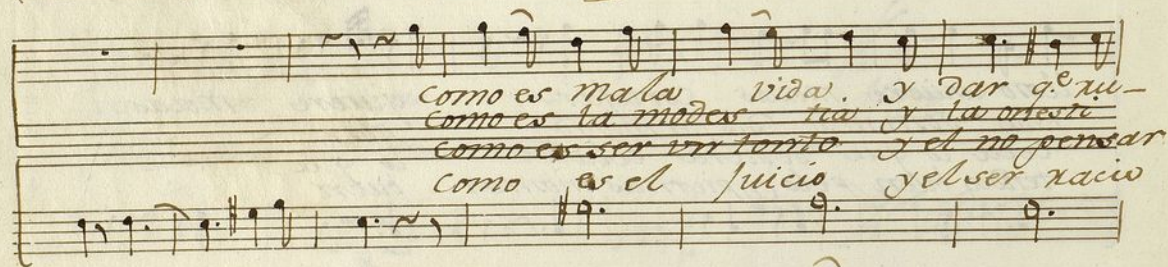 como es mala vida y dar q.e ru-
como es la modes tia y la onesti
como es ser un tonto y el no pensar
como es el juicio y el ser racio